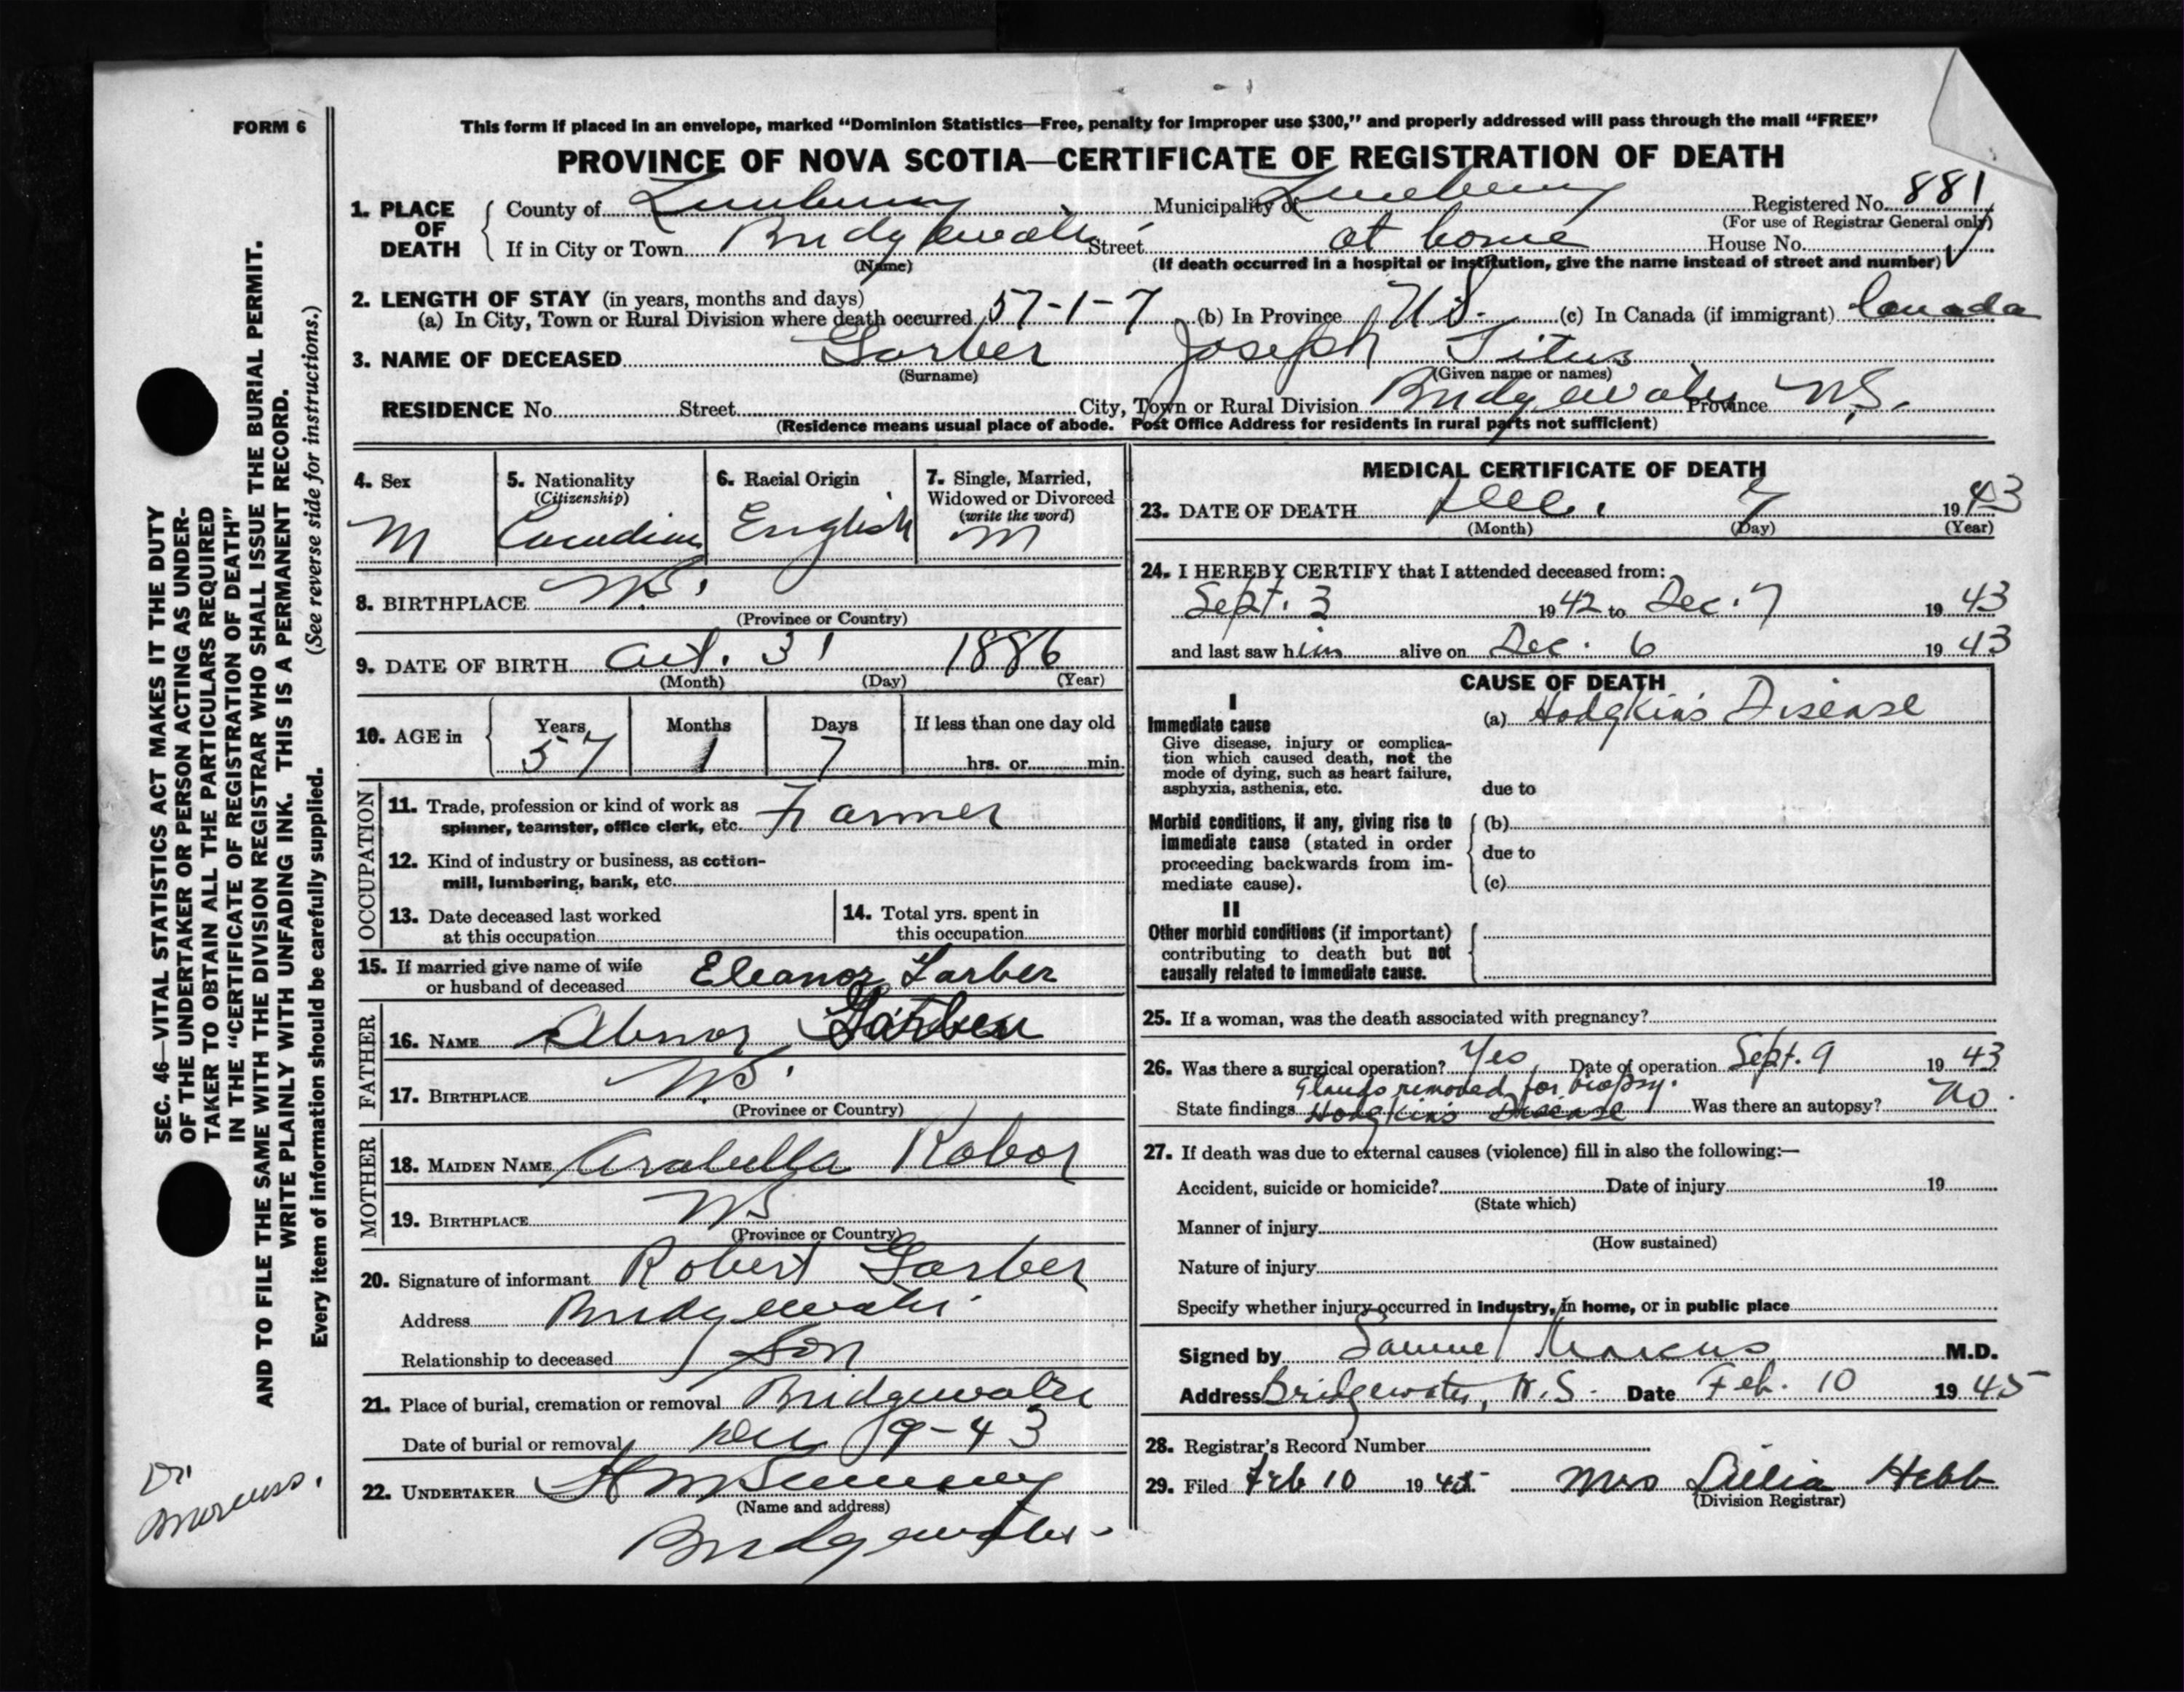 FORM 6
This form if placed in an envelope, marked “Dominion Statistics—Free, penalty for improper use $300,” and properly addressed will pass through the mail “FREE”
PROVINCE OF NOVA SCOTIA—CERTIFICATE OF REGISTRATION OF DEATH
1. PLACE OF DEATH
County of Lunenburg Municipality of Lunenburg Registered No. 881
(For use of Registrar General only)
If in City or Town Bridgewater Street at home House No.
(Name) (If death occurred in a hospital or institution, give the name instead of street and number)
2. LENGTH OF STAY (in years, months and days)
(a) In City, Town or Rural Division where death occurred 57-1-7 (b) In Province N.S. (c) In Canada (if immigrant) Canada
3. NAME OF DECEASED Garber Joseph Titus
(Surname) (Given name or names)
RESIDENCE No. Street City, Town or Rural Division Bridgewater Province N.S.
(Residence means usual place of abode. Post Office Address for residents in rural parts not sufficient)
4. Sex M
5. Nationality (Citizenship) Canadian
6. Racial Origin English
7. Single, Married, Widowed or Divorced (write the word) M
8. BIRTHPLACE N.S.
(Province or Country)
9. DATE OF BIRTH Oct. 31 1886
(Month) (Day) (Year)
10. AGE in Years 57 Months 1 Days 7 If less than one day old
hrs. or min.
OCCUPATION
11. Trade, profession or kind of work as spinner, teamster, office clerk, etc. Farmer
12. Kind of industry or business, as cotton-mill, lumbering, bank, etc.
13. Date deceased last worked at this occupation
14. Total yrs. spent in this occupation
15. If married give name of wife or husband of deceased Eleanor Garber
FATHER
16. NAME Abner Garber
17. BIRTHPLACE N.S.
(Province or Country)
MOTHER
18. MAIDEN NAME Arabella Robar
19. BIRTHPLACE N.S
(Province or Country)
20. Signature of informant Robert Garber
Address Bridgewater
Relationship to deceased Son
21. Place of burial, cremation or removal Bridgewater
Date of burial or removal Dec 9-43
22. UNDERTAKER
(Name and address)
Bridgewater
MEDICAL CERTIFICATE OF DEATH
23. DATE OF DEATH Dec. 7 1943
(Month) (Day) (Year)
24. I HEREBY CERTIFY that I attended deceased from:
Sept. 3 1942 to Dec. 7 1943
and last saw him alive on Dec. 6 1943
CAUSE OF DEATH
I
Immediate cause
Give disease, injury or complication which caused death, not the mode of dying, such as heart failure, asphyxia, asthenia, etc.
(a) Hodgkin's Disease
due to
Morbid conditions, if any, giving rise to immediate cause (stated in order proceeding backwards from immediate cause).
(b)
due to
(c)
II
Other morbid conditions (if important) contributing to death but not causally related to immediate cause.
25. If a woman, was the death associated with pregnancy?
26. Was there a surgical operation? Yes Date of operation Sept. 9 1943
Glands removed for biopsy.
State findings Hodgkin's Disease Was there an autopsy? No.
27. If death was due to external causes (violence) fill in also the following:—
Accident, suicide or homicide? Date of injury 19
(State which)
Manner of injury
(How sustained)
Nature of injury
Specify whether injury occurred in industry, in home, or in public place
Signed by Samuel Marcus M.D.
Address Bridgewater, N.S. Date Feb. 10 1945
28. Registrar's Record Number
29. Filed Feb 10 1945 Mrs Lillia Hebb
(Division Registrar)
SEC. 46—VITAL STATISTICS ACT MAKES IT THE DUTY
OF THE UNDERTAKER OR PERSON ACTING AS UNDER-
TAKER TO OBTAIN ALL THE PARTICULARS REQUIRED
IN THE “CERTIFICATE OF REGISTRATION OF DEATH”
AND TO FILE THE SAME WITH THE DIVISION REGISTRAR WHO SHALL ISSUE THE BURIAL PERMIT.
WRITE PLAINLY WITH UNFADING INK. THIS IS A PERMANENT RECORD.
Every item of information should be carefully supplied. (See reverse side for instructions.)
Dr
Marcuss.